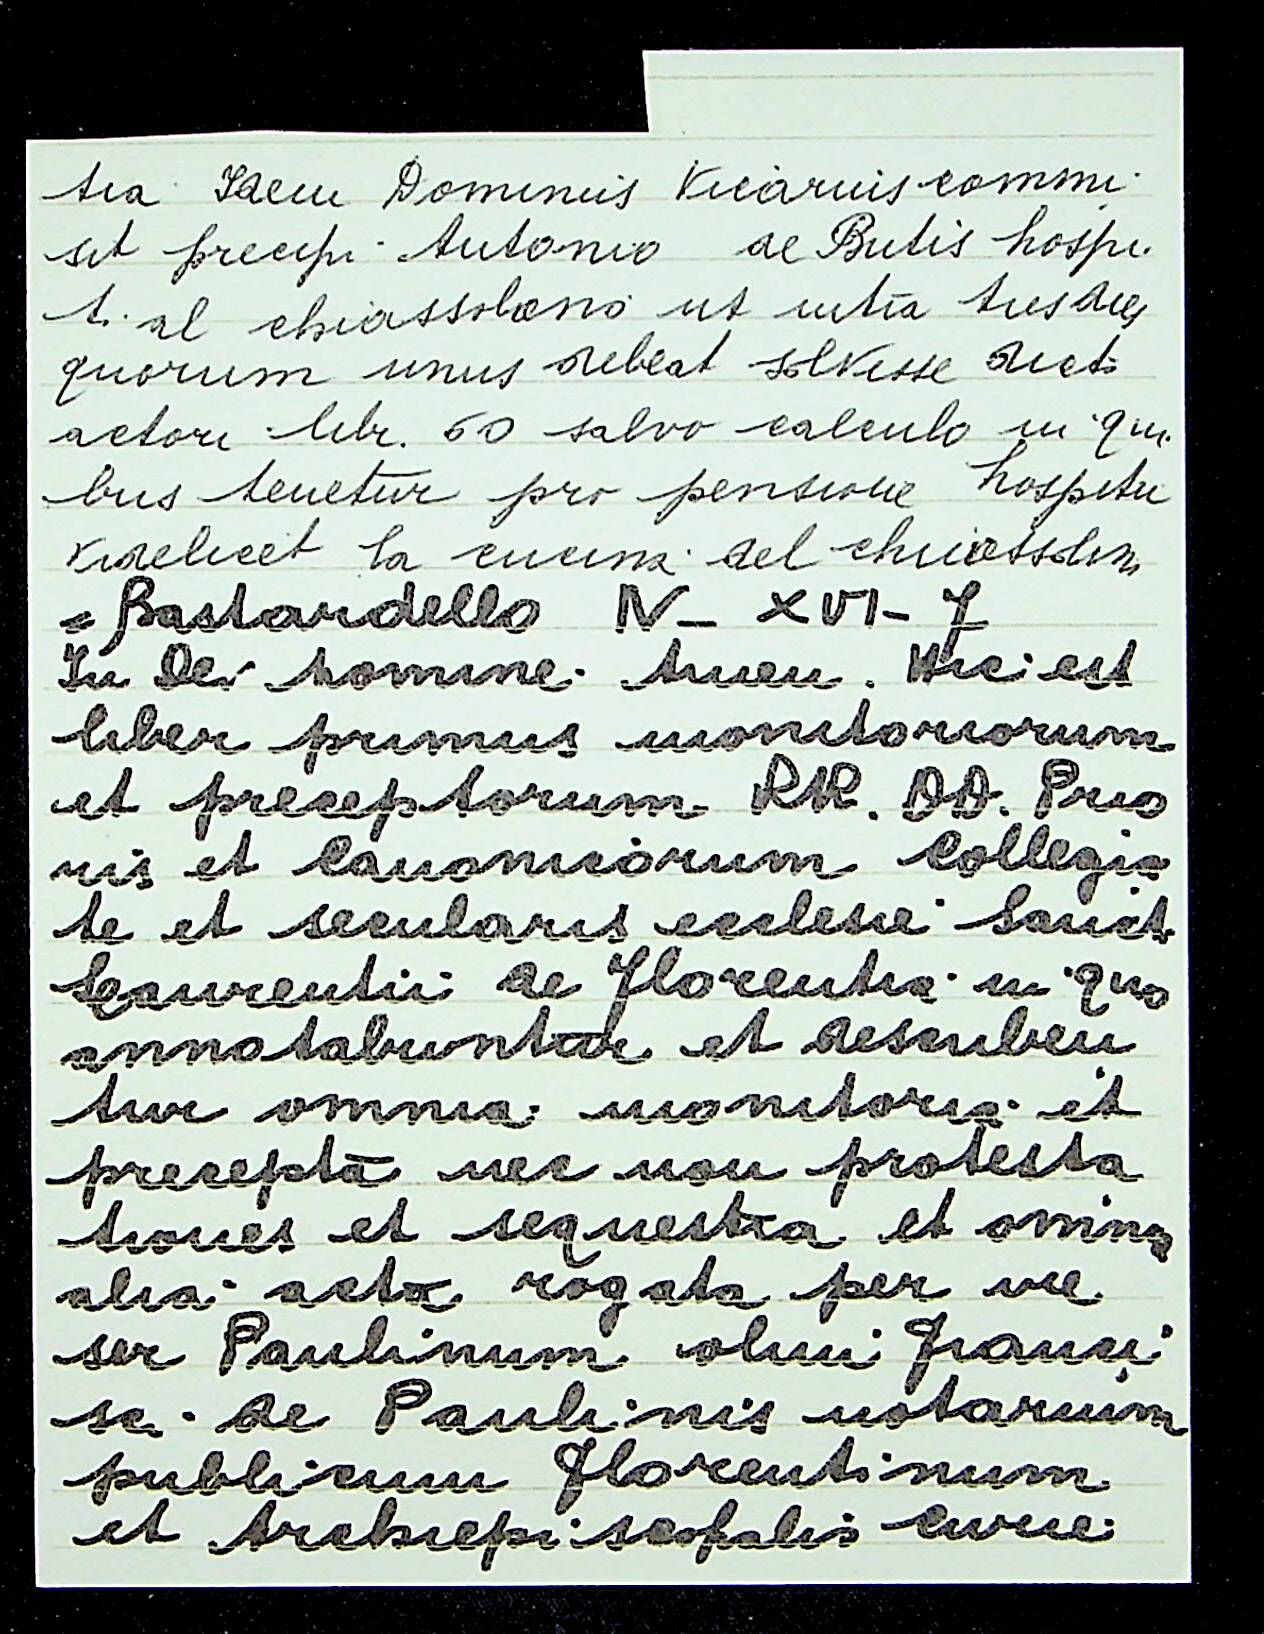 tra Idem Dominus Vicarius commi
sit precipi Antonio de Butis hospi
ti al chiassolino ut infra tres dies
quorum unus debeat solvisse dicto
actori libr. 60 salvo calculo in qui
bus tenetur pro pensione hospitii
videlicet la cucina del chiassolin
= Bastardello IV - XVI - 7
In Dei nomine Amen. Hic est
liber primus monitoriorum
et preceptorum RR. DD. Prio
ris et Canonicorum Collegia
te et secularis ecclesie Sancti
Laurentii de Florentia in quo
annotabuntur et describen
tur omnia monitoria et
precepta nec non protesta
tiones et sequestra et omnia
alia acta rogata per me
ser Paulinum olim Franci
sci de Paulinis notarium
publicum Florentinum
et Archiepiscopalis curie